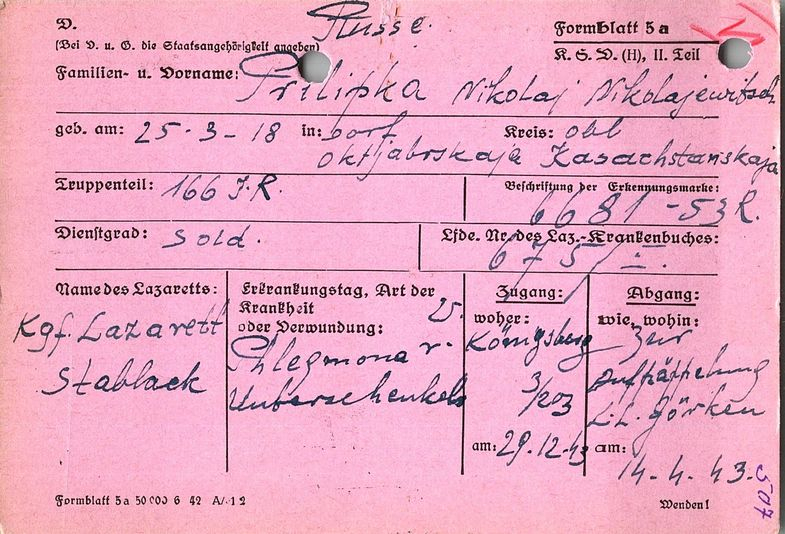 D. Russe.
(Bei D. u. G. die Staatsangehörigkeit angeben)
Formblatt 5a
K. S. D. (H), II. Teil
Familien- u. Vorname: Prilipka Nikolaj Nikolajewitsch
geb. am: 25-3-18 in: Dorf Kreis: obl
Oktjabrskaja Kasachstanskaja
Truppenteil: 166 J.R.
Beschriftung der Erkennungsmarke:
6681-53R.
Dienstgrad: Sold.
Lfde. Nr. des Laz.-Krankenbuches:
6751/II.
Name des Lazaretts:
Kgf. Lazarett
Stablack
Erkrankungstag, Art der
Krankheit 25.
oder Verwundung:
Phlegmona r.
Unterschenkels
Zugang:
woher:
Königsberg
3/203
am: 29-12-43
Abgang:
wie, wohin:
Zur
Aufräppelung
L.L. Görken
am:
14-4-43.
507
Formblatt 5a 50 000 6 42 A/ 12
Wenden!